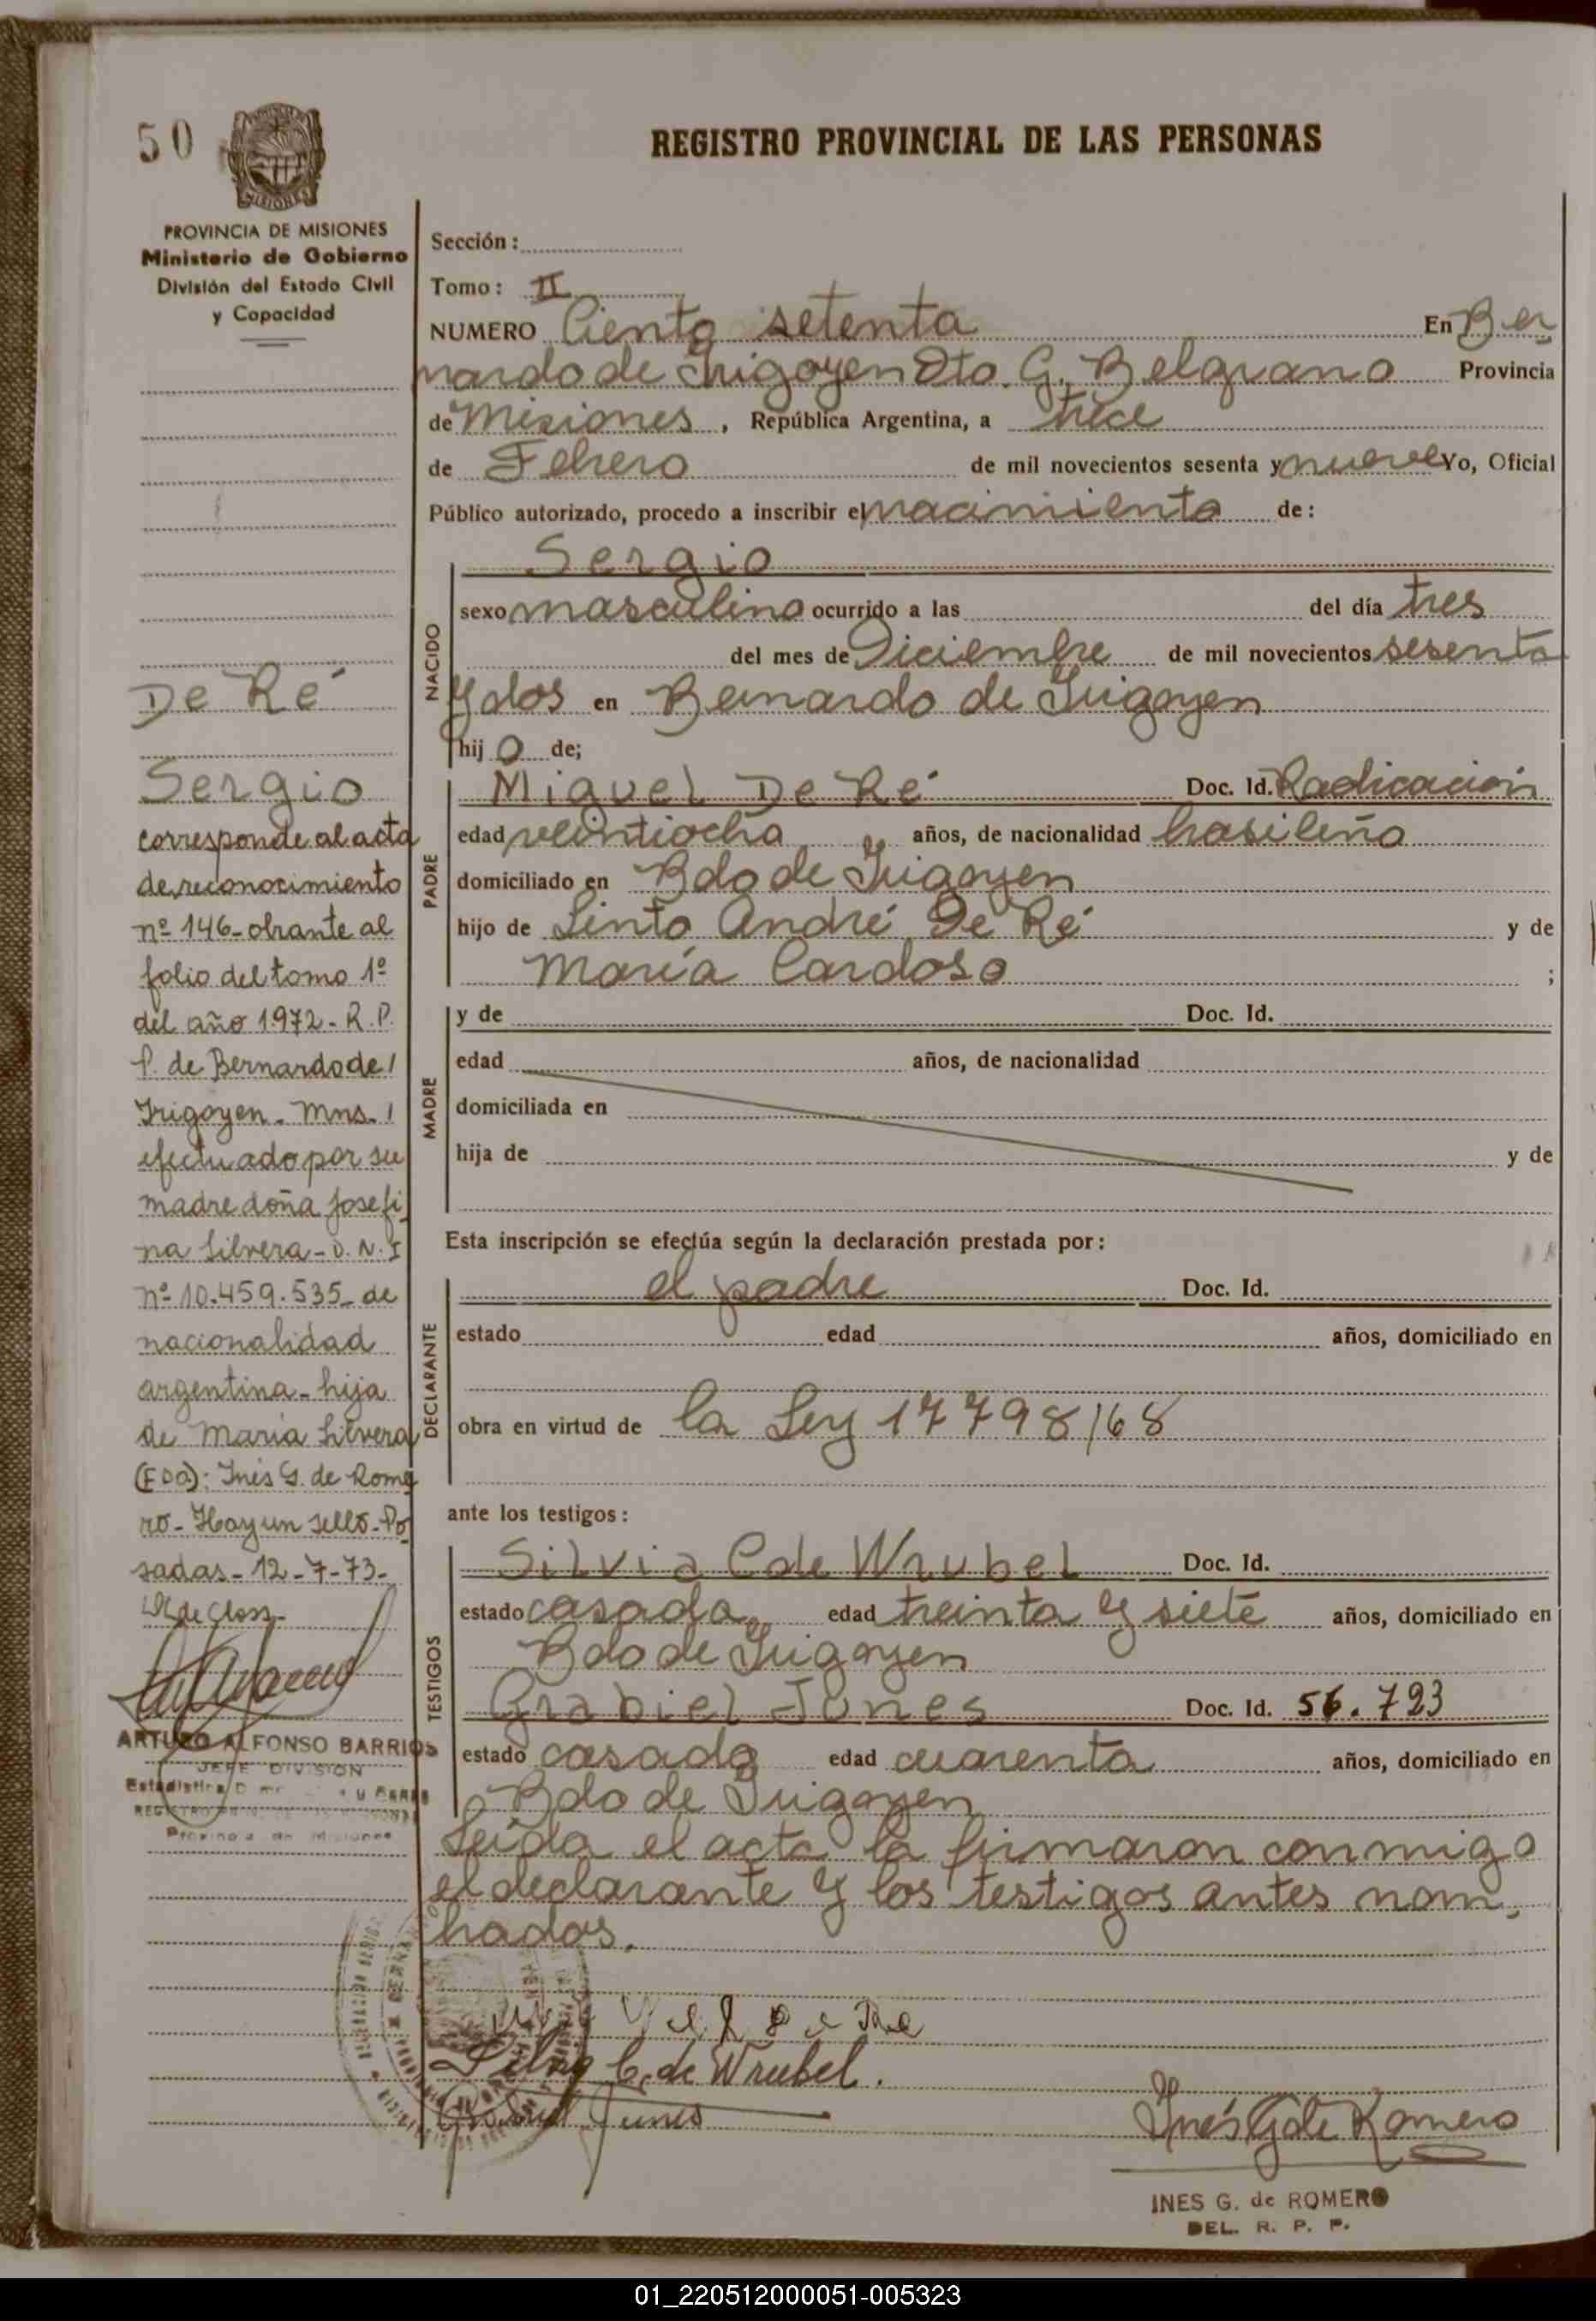 50
REGISTRO PROVINCIAL DE LAS PERSONAS
MISIONES
PROVINCIA DE MISIONES
Ministerio de Gobierno
División del Estado Civil
y Capacidad
De Ré
Sergio
corresponde al acta
de reconocimiento
nº 146-obrante al
folio del tomo 1º
del año 1972- R. P.
P. de Bernardo de I
Irigoyen- Mns. /
efectuado por su
madre doña Josefi
na Silvera- D. N. I
nº 10.459.535- de
nacionalidad
argentina- hija
de María Silvera
(FDO): Inés G. de Rome
ro- Hay un sello- Po
sadas- 12-7-73-
ARTURO ALFONSO BARRIOS
JEFE DIVISION
Provincia de Misiones
Sección:
Tomo: II
NUMERO Ciento setenta En Ber
nardo de Irigoyen Dto. G. Belgrano Provincia
de Misiones, República Argentina, a trece
de Febrero de mil novecientos sesenta y nueve Yo, Oficial
Público autorizado, procedo a inscribir el nacimiento de:
NACIDO
Sergio
sexo masculino ocurrido a las del día tres
del mes de Diciembre de mil novecientos sesenta
y dos en Bernardo de Irigoyen
hij o de;
PADRE
Miguel De Ré Doc. Id. Radicación
edad veintiocho años, de nacionalidad brasileño
domiciliado en Bdo de Irigoyen
hijo de Sinto André De Ré y de
María Cardoso ;
MADRE
y de Doc. Id.
edad años, de nacionalidad
domiciliada en
hija de y de
Esta inscripción se efectúa según la declaración prestada por:
DECLARANTE
el padre Doc. Id.
estado edad años, domiciliado en
obra en virtud de la Ley 17798/68
ante los testigos:
TESTIGOS
Silvia C de Wrubel Doc. Id.
estado casada edad treinta y siete años, domiciliado en
Bdo de Irigoyen
Grabiel Junes Doc. Id. 56.793
estado casado edad cuarenta años, domiciliado en
Bdo de Irigoyen
Leída el acta la firmaron conmigo
el declarante y los testigos antes nom,
brados.
C. de Wrubel.
Junes
Inés G de Romero
INES G. de ROMERO
DEL. R. P. P.
01_220512000051-005323